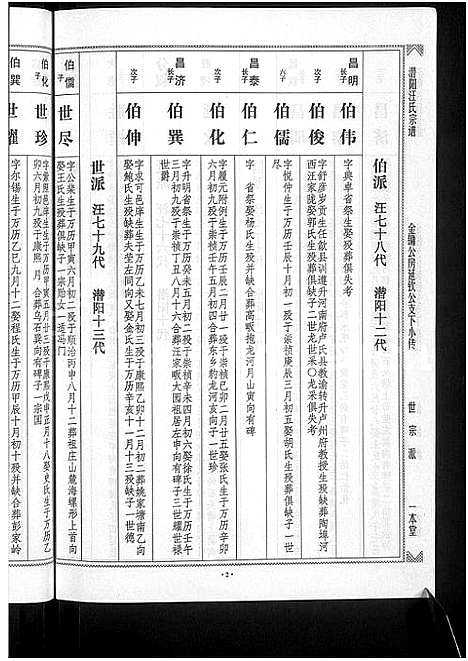 潜阳汪氏宗谱
金镛公房延钦公支下小传
世宗派
一本堂
伯派 汪七十八代 潜阳十二代
昌明
长子
伯伟
字典卓省祭生娶殁葬俱失考
次子
伯俊
字舒彦岁贡生任歙县训道升河南府卢氏县教谕转升卢州府教授生殁缺葬陶埠河
西汪家陇娶郭氏生殁葬俱缺子二世龙世采〇龙采俱失考
六子
伯儒
字悦仲生于万历壬辰十月初一殁于崇祯庚辰三月初五娶胡氏生殁葬俱缺子一世
尽
昌泰
长子
伯仁
字 省祭娶杨氏生殁并缺合葬高畈抱龙河月山寅向有碑
次子
伯化
字履元附例生于万历壬辰二月廿一殁于崇祯己卯二月廿五娶张氏生于万历辛卯
六月初九殁于崇祯壬午五月初四合葬东乡豹龙河亥向子一世珍
昌济
长子
伯巽
字升明省祭生于万历癸未五月初二殁于崇祯辛未四月初六娶徐氏生于万历壬午
三月初九殁于崇祯丁丑八月十六合葬汪家畈大园祖居左申向有碑子三世耀世禄
世爵
次子
伯伸
字求可邑庠生生于万历乙未七月初三殁于康熙乙卯十二月初二葬姚家塝南乙向
娶鲍氏生殁缺葬夫茔左同向又娶金氏生于万历辛亥十一月十三殁缺子一世德
世派 汪七十九代 潜阳十三代
伯儒
子
世尽
字公荣生于万历甲寅六月初三殁于顺治丙申八月十二葬祖庄山麓海螺形上首向
娶王氏生殁葬俱缺子一宗贻女一适冯门
伯化
子
世珍
卯六月初九殁于康熙 月 合葬乌石巽向有碑子一宗国
伯巽
子
世耀
字尔锡生于万历乙巳九月十二娶程氏生于万历甲辰十月初十殁并缺合葬彭家岭
·2·